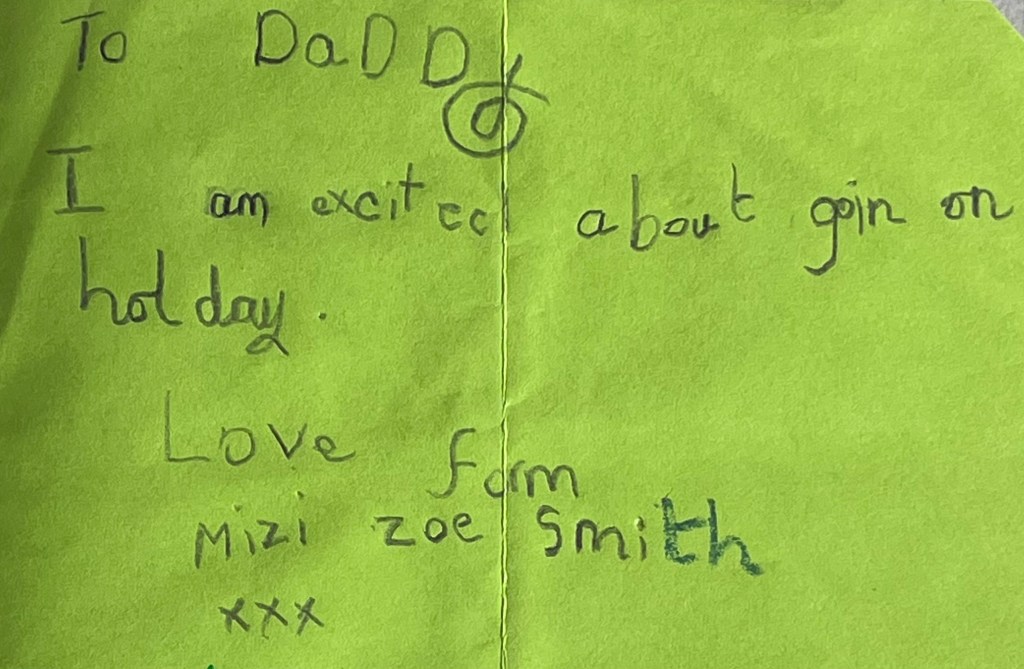 To DaDDy
I am excited about goin on
holday.
Love form
Mizi zoe smith
xxx